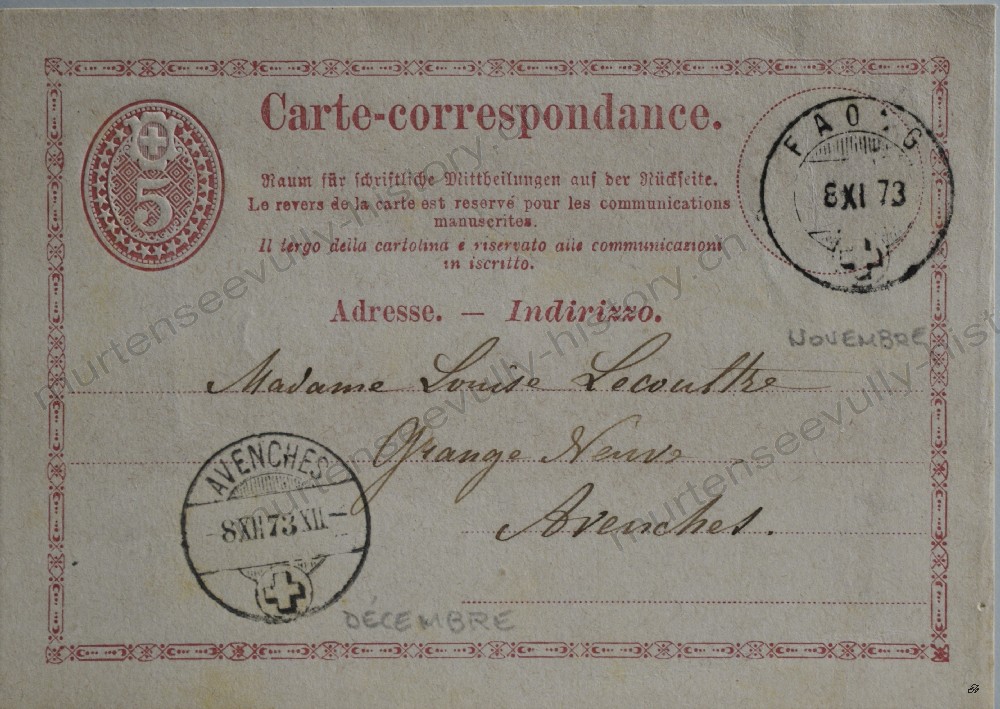 Carte-correspondance.
5
Raum für schriftliche Mittheilungen auf der Rückseite.
Le revers de la carte est reservé pour les communications
manuscrites.
Il tergo della cartolina è riservato alle communicazioni
in iscritto.
FAOUG
8 XI 73
Adresse. — Indirizzo.
NOVEMBRE
Madame Louise Lecoultre
Grange Neuve
Avenches.
AVENCHES
8 XII 73 XII
DÉCEMBRE
murtenseevully-history.ch
murtenseevully-history.ch
murtenseevully-history